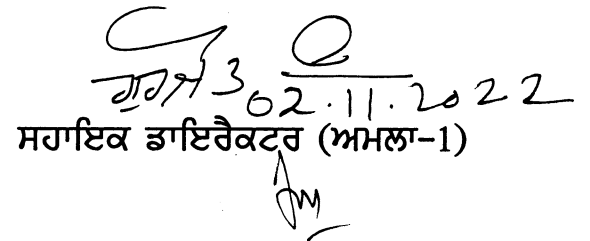 02.11.2022
ਸਹਾਇਕ ਡਾਇਰੈਕਟਰ (ਅਮਲਾ-1)